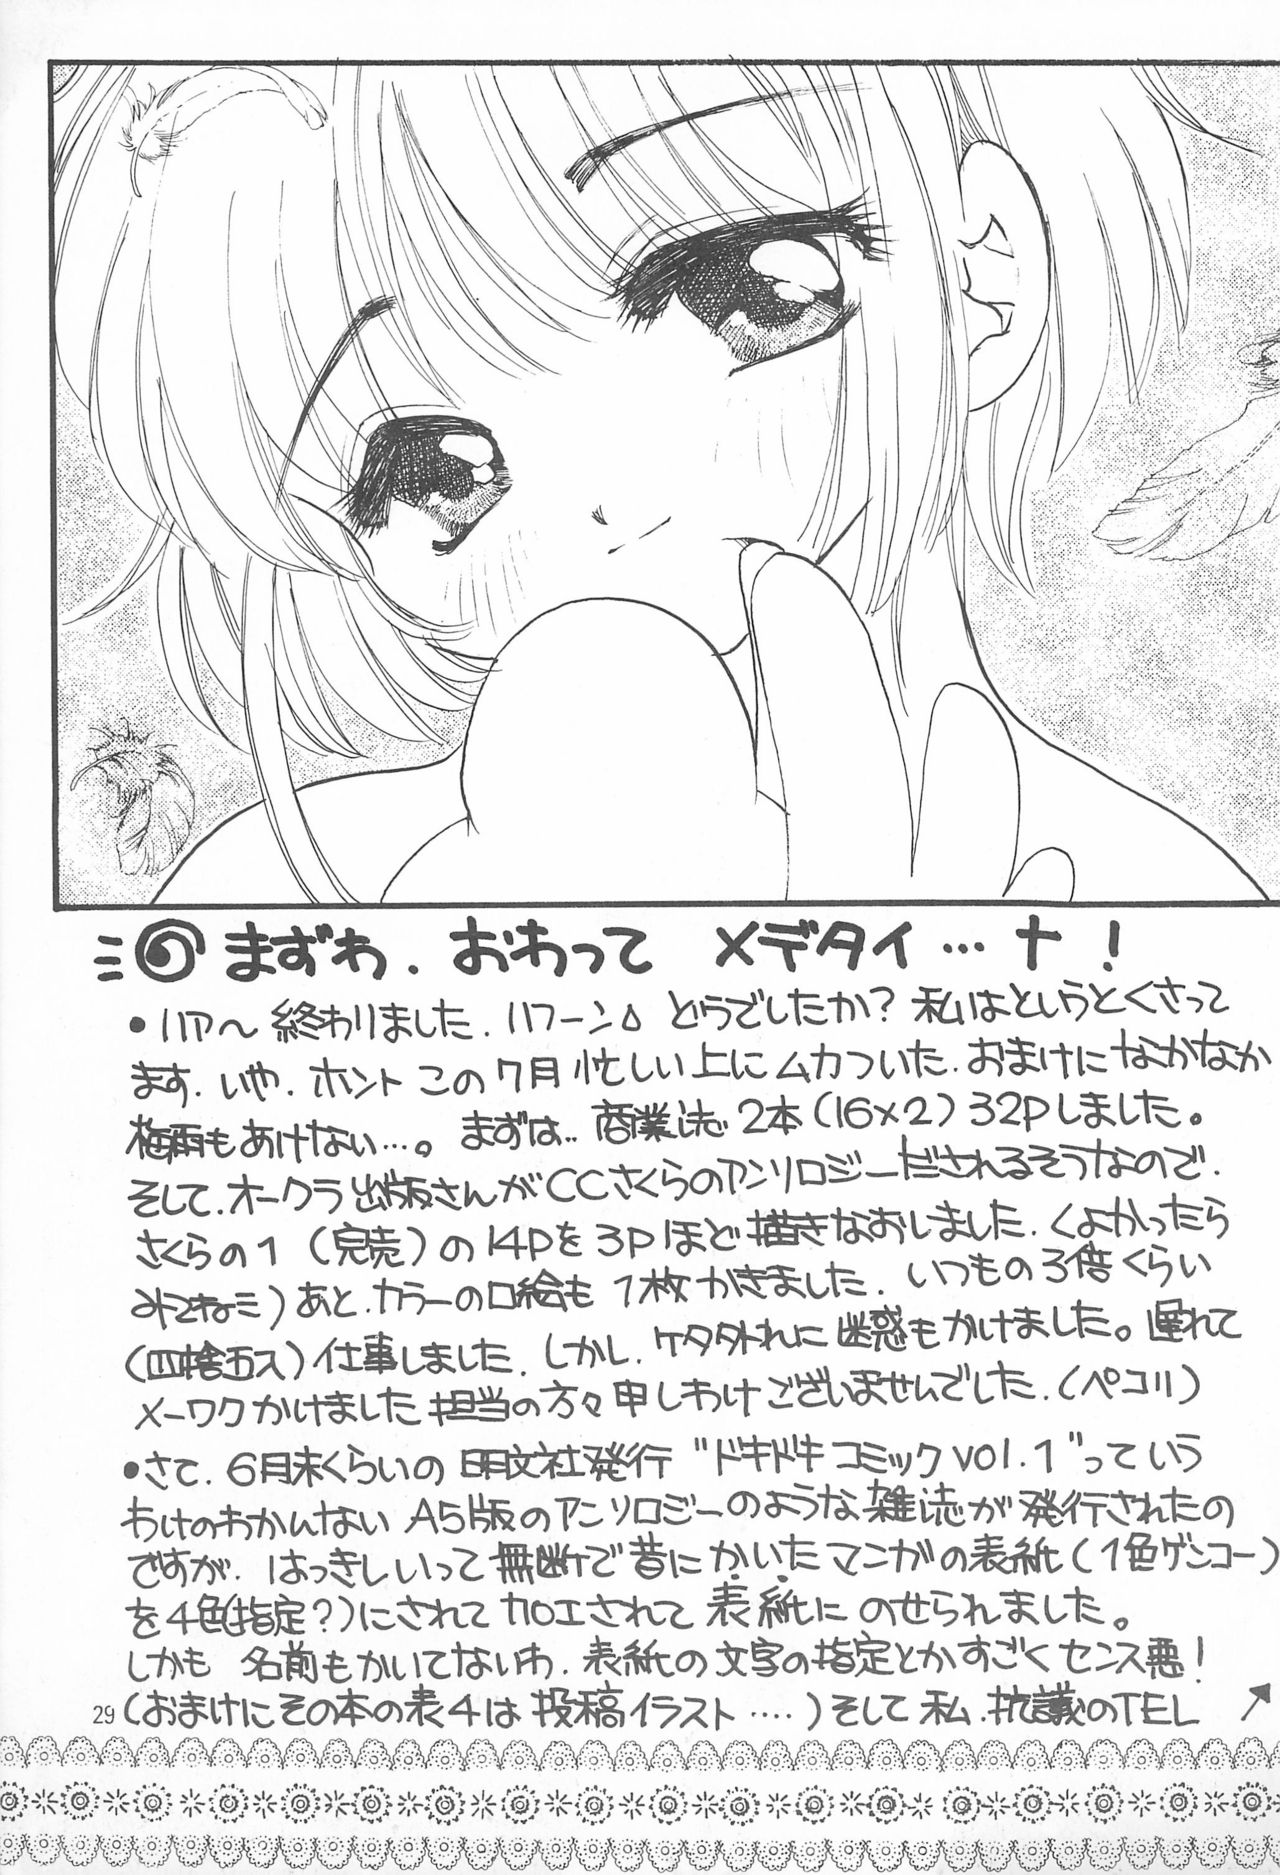 まずわ.おわって メデタイ…ナ!
・ハア〜終わりました.ハフーン♤どうでしたか?私はというとくさって
ます.いや.ホントこの7月忙しい上にムカついた.おまけになかなか
梅雨もあけない…。まずは..商業誌2本(16×2)32Pしました。
そして.オークラ出版さんがCCさくらのアンソロジーだされるそうなので.
さくらの1(完売)の14Pを3Pほど描きなおしました.(よかったら
みてねミ)あと.カラーの口絵も1枚かきました.いつもの3倍くらい
(四捨五入)仕事しました.しかし.ケタ外れに迷惑もかけました。遅れて
メーワクかけました担当の方々申しわけございませんでした.(ペコリ)
・さて.6月末くらいの明文社発行"ドキドキコミックvol.1"っていう
わけのわかんないA5版のアンソロジーのような雑誌が発行されたの
ですが.はっきしいって無断で昔にかいたマンガの表紙(1色ゲンコー)
を4色(指定?)にされて加工されて表紙にのせられました。
しかも名前もかいてないわ.表紙の文字の指定とかすごくセンス悪!
(おまけにその本の表4は投稿イラスト….)そして私.抗議のTEL
29